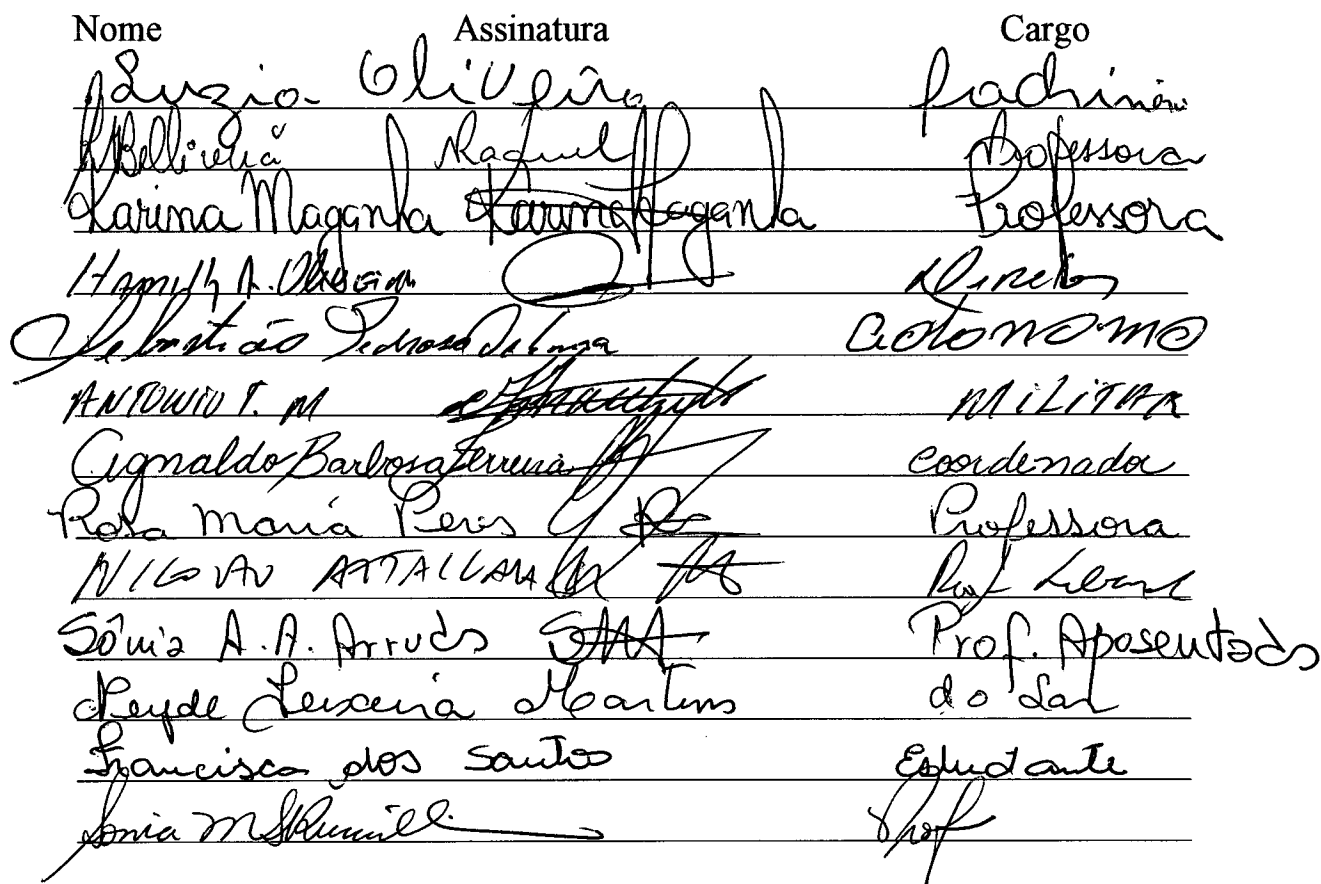 Nome Assinatura Cargo
Luzia Oliveira
Raquel Professora
Karina Maganha Karina Maganha Professora
A. Oliveira Diretor
Sebastião Pedrosa de Lima autonomo
ANTONIO T. M MiLiTAR
Agnaldo Barbosa Ferreira coordenador
Rosa Maria Peres Professora
Prof
Sônia A. A. Arruda SAAA Prof. Aposentada
Neyde Teixeira Martins do Lar
Francisca dos Santos Estudante
Sonia M Prof